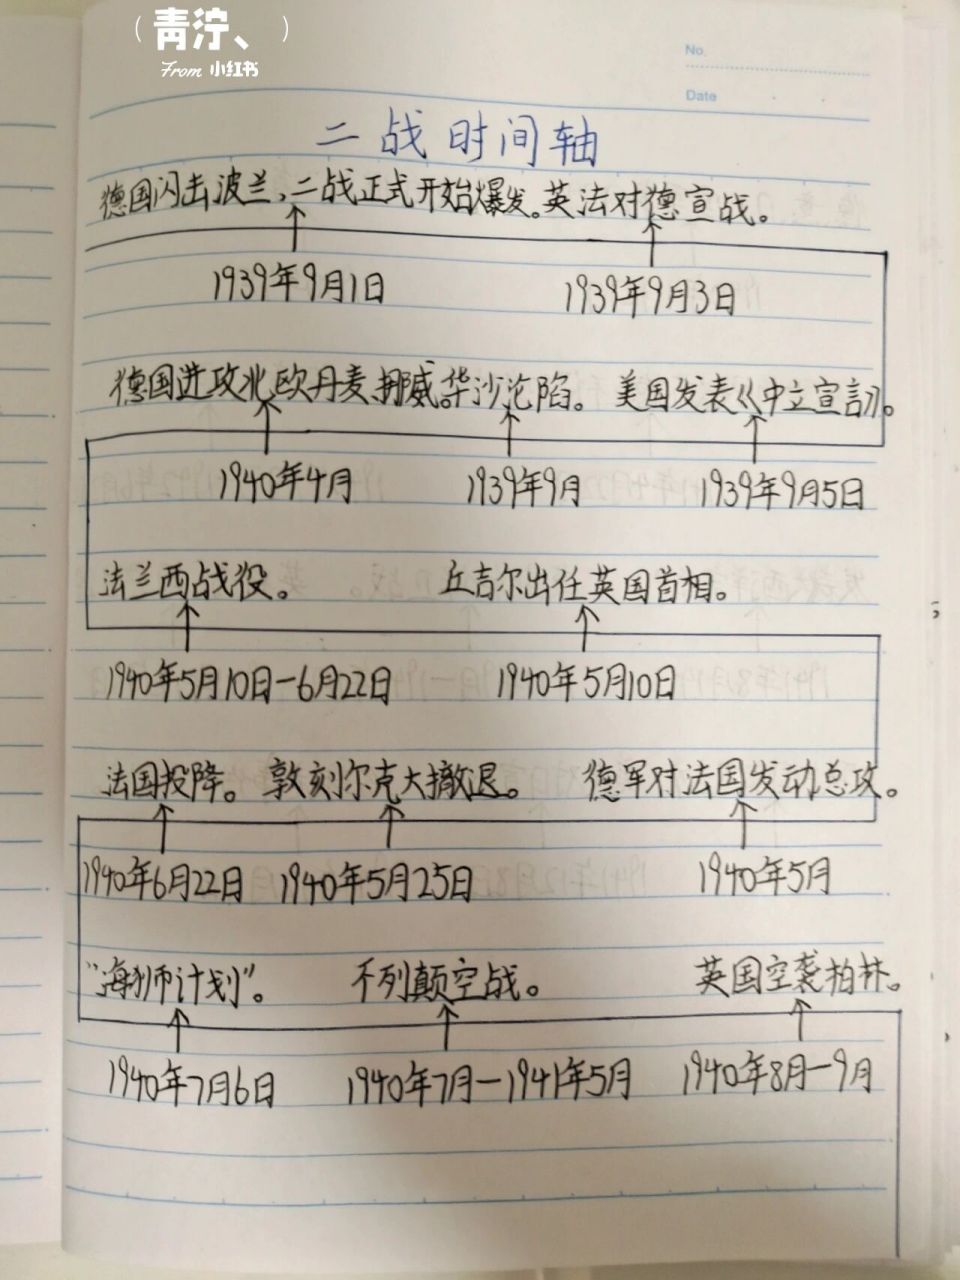 （青泞、）
From 小红书
No.
Date
二战时间轴
德国闪击波兰,二战正式开始爆发。英法对德宣战。
1939年9月1日 1939年9月3日
德国进攻北欧丹麦、挪威。华沙沦陷。 美国发表《中立宣言》。
1940年4月 1939年9月 1939年9月5日
法兰西战役。 丘吉尔出任英国首相。
1940年5月10日-6月22日 1940年5月10日
法国投降。 敦刻尔克大撤退。 德军对法国发动总攻。
1940年6月22日 1940年5月25日 1940年5月
“海狮计划”。 不列颠空战。 英国空袭柏林。
1940年7月6日 1940年7月-1941年5月 1940年8月-9月